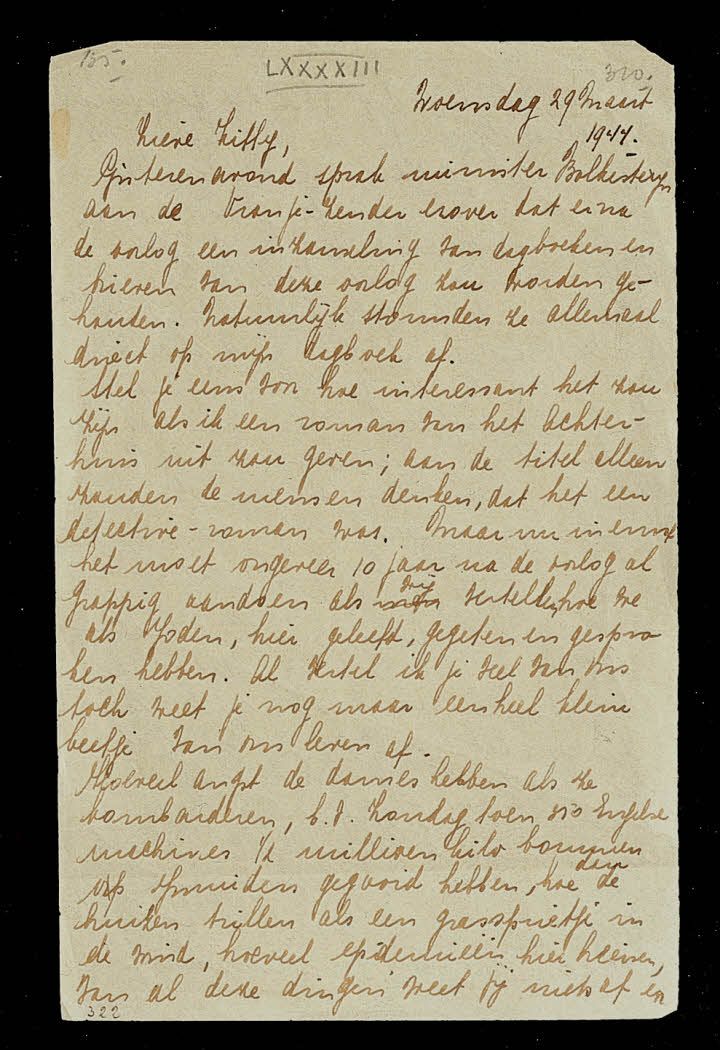 155.
LXXXXIII
320.
Woensdag 29 Maart
1944.
Lieve Kitty,
Gisterenavond sprak minister Bolkesteyn
aan de Oranje-zender erover dat er na
de oorlog een inzameling van dagboeken en
brieven van deze oorlog zou worden ge-
houden. Natuurlijk stormden ze allemaal
direct op mijn dagboek af.
Stel je eens voor hoe interessant het zou
zijn als ik een roman van het Achter-
huis uit zou geven; aan de titel alleen
zouden de mensen denken, dat het een
detective-roman was. Maar nu in ernst
het moet ongeveer 10 jaar na de oorlog al
grappig aandoen als wij vertellen, hoe we
als Joden, hier geleefd, gegeten en gespro
ken hebben. Al vertel ik je veel van ons
toch weet je nog maar een heel klein
beetje van ons leven af.
Hoeveel angst de dames hebben als ze
bombarderen, b.v. Zondag toen 350 Engelse
machines ½ millioen kilo bommen
op Ijmuiden gegooid hebben, hoe dan de
huizen trillen als een grassprietje in
de wind, hoeveel epidemieën hier heersen,
van al deze dingen weet jij niets af en
322